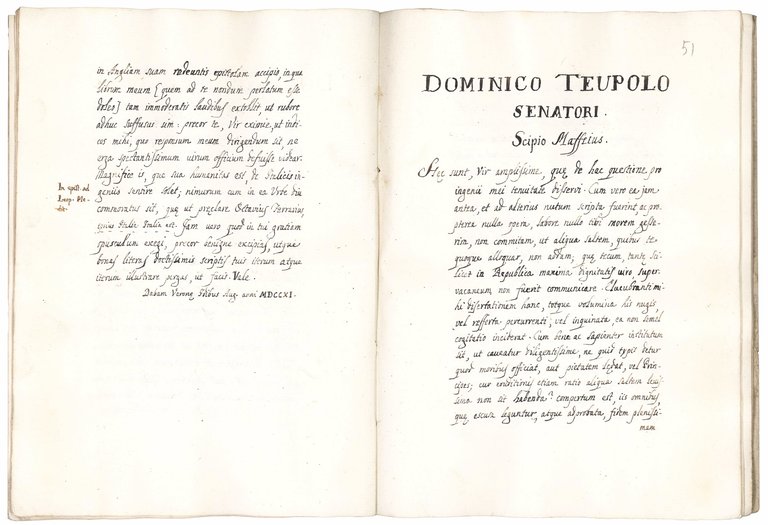 in Angliam suam redeuntis epistolam accipio, in qua
librum meum [quem ad te nondum perlatum esse
doleo] tam immoderatis laudibus extollit, ut rubore
adhuc suffusus sim: precor te, Vir eximie, ut indi-
ces mihi, quo responsum meum dirigendum sit, ne
erga spectantissimum virum officium defuisse videar.
Magnifice is, quę sua humanitas est, de Italicis in-
geniis sentire solet; nimirum cum in ea Urbe diu
commoratus sit, quę ut pręclare Octavius Ferrarius
Italię Italia est. Jam vero quod in tui gratiam
opusculum exegi, precor benigne excipias, utque
bonas literas doctissimis scriptis tuis iterum atque
iterum illustrare pergas, ut facis. Vale.
Dabam Veronę Idibus Aug. anni MDCCXI.
In epist. ad
Imp.
51
DOMINICO TEUPOLO
SENATORI.
Scipio Maffeius.
Hęc sunt, Vir amplissime, quę de hac quęstione pro
ingenii mei tenuitate disserui. Cum vero ea jam
antea, et ad alterius nutum scripta fuerint, ac pro-
pterea nulla opera, labore nullo tibi morem gesse-
rim, non committam, ut aliqua saltem, quibus te
quoque alloquar, non addam; quę tecum, tantę sci-
licet in Republica maxima dignitatis viro, super-
vacaneum non fuerit communicare. Elucubranti mi-
hi dissertationem hanc, totque volumina his nugis
vel referta percurrenti, vel inquinata, ea non semel
cogitatio inciderat. Cum bene ac sapienter institutum
sit, ut caveatur diligentissime, ne quid typis detur
quod moribus officiat, aut pietatem lędat, vel Prin-
cipes; cur eruditionis etiam ratio aliqua saltem levis-
sima non sit habenda? compertum est, iis omnibus,
quę excusa leguntur, atque adprobata, fidem plenissi-
mam